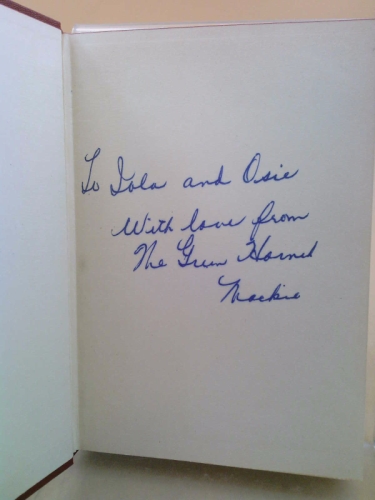 To Iola and Osie
With love from
The Green Hornet
Mackie